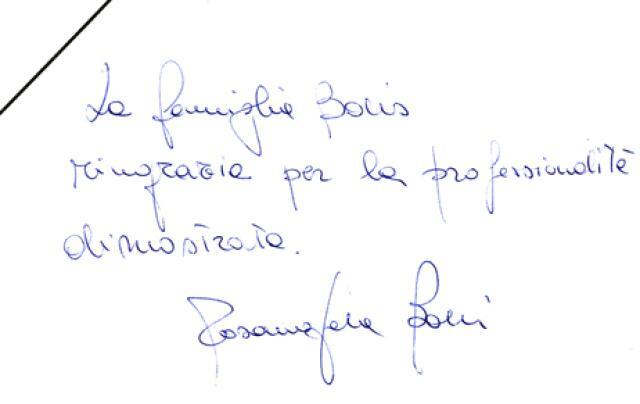 La famiglia Boris
ringrazia per la professionalità
dimostrata.
Rosangela